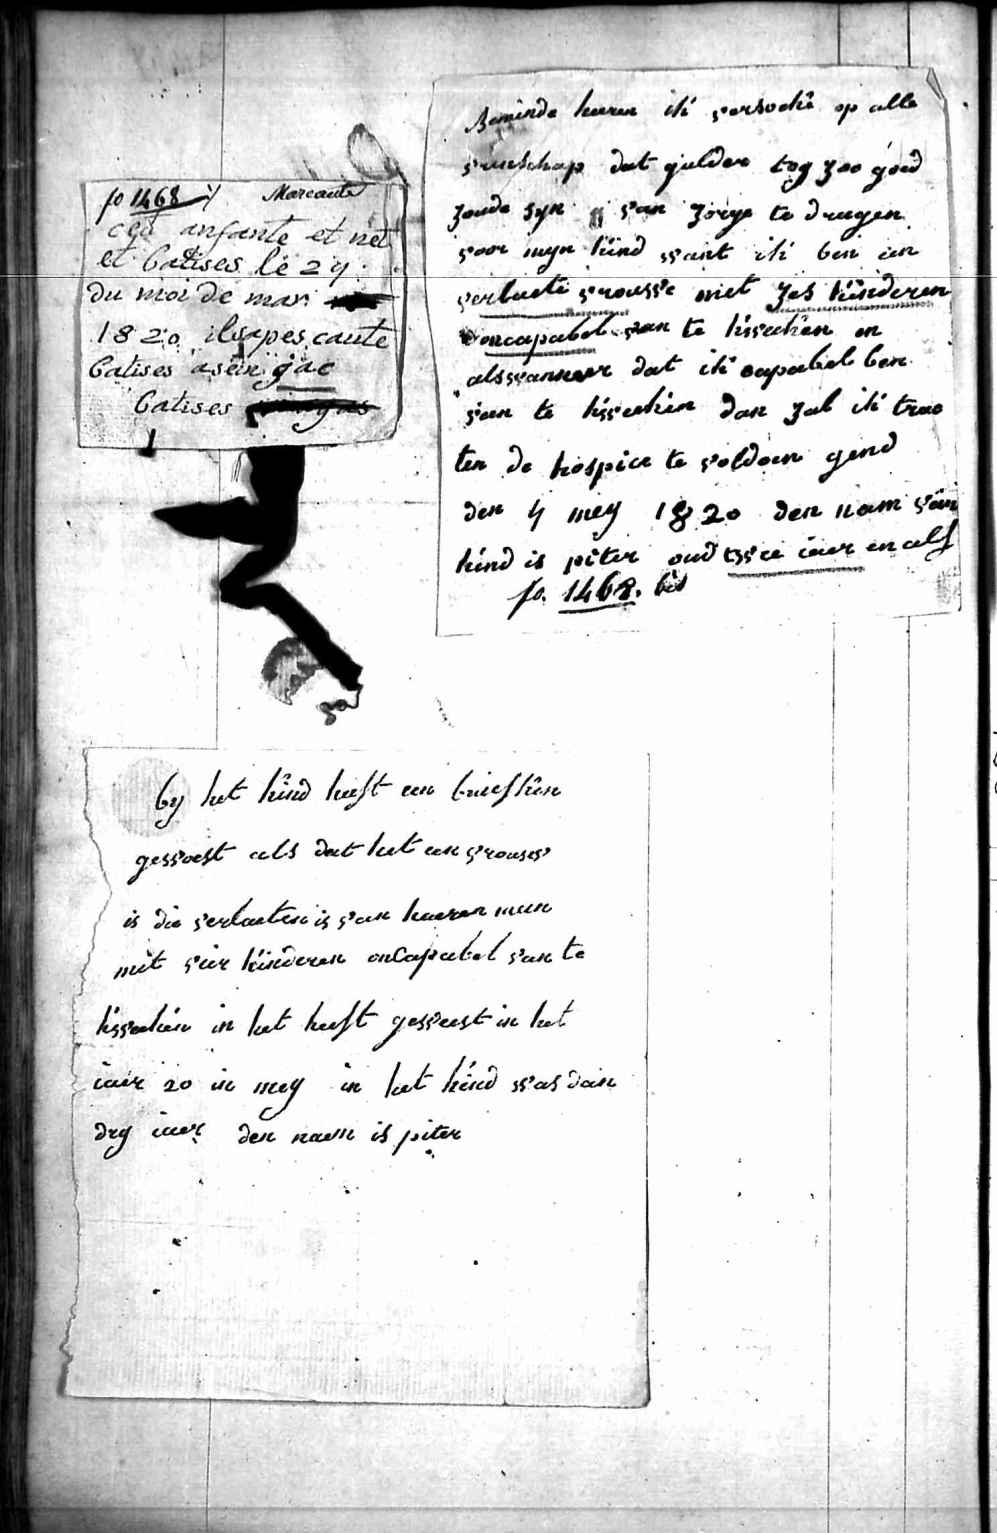 fo 1468 Marcante
cet anfante et net
et batises le 29
du moi de mar
1820 ilsapes cante
batises asein jac
batises
Beminde heeren ik versocke op alle
vrinschap dat gulder tog zoo goed
zoude syn van zorge te dragen
voor myn kind want ik ben een
verlaete vrouwe met zes kinderen
oncapabel van te kweeken en
alswanneer dat ik capabel ben
van te kweeken dan zal ik trac
ten de hospice te voldoen gend
den 4 mey 1820 den nam van
kind is piter oud twee iaer en alf
fo. 1468. bis
by het kind heeft een briefken
geweest als dat het een vrouw
is die verlaeten is van haeren man
met vier kinderen oncapabel van te
kweeken in het heeft geweest in het
iaer 20 in mey in het kind was dan
dry iaer den naem is piter